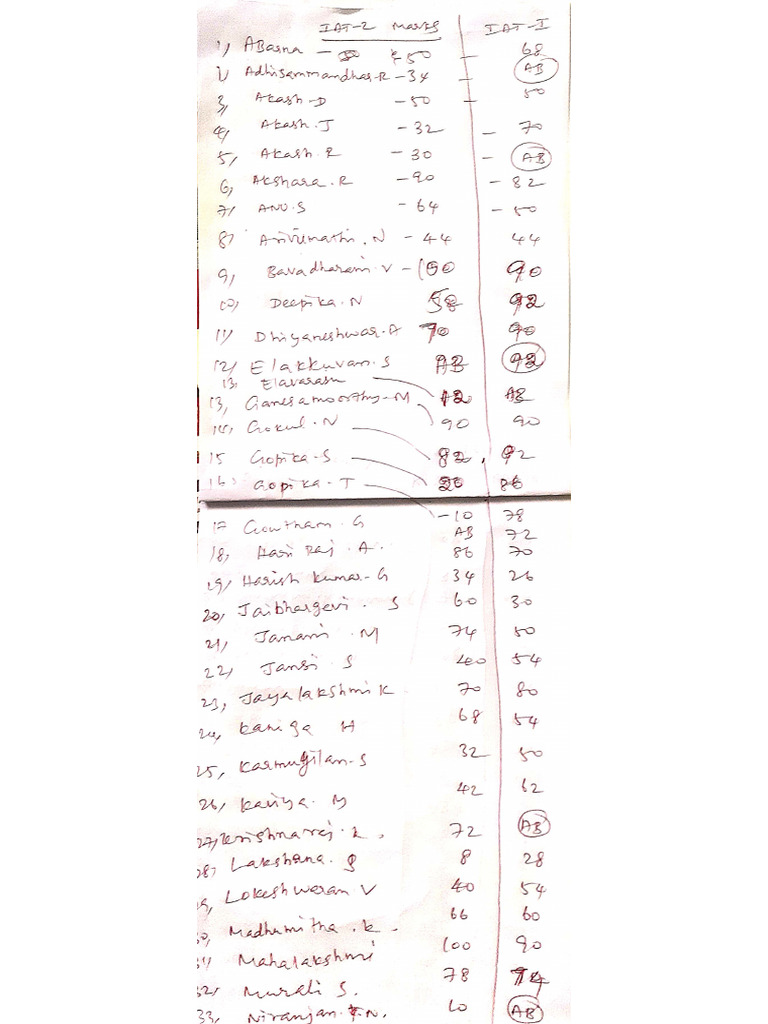 IAT-2 Marks IAT-I
1, ABarna - 50 - 68
2, Adhisammandhar-R - 34 - AB
3, Akash-D - 50 - 50
4, Akash.J - 32 - 70
5, Akash.R - 30 - AB
6, Akshara.R - 90 - 82
7, ANU.S - 64 - 50
8, Arivumathi.N - 44 44
9, Bavadharani.V - 100 90
10, Deepika.N 58 92
11, Dhiyaneshwar.A 70 90
12, Elakkuvan.S AB 92
13, Elavarasan
13, Ganesamoorthy-M 12 AB
14, Gokul.N 90 90
15 Gopika-S 82 92
16, Gopika-T 20 86
17 Gowtham.G - 10 78
AB 72
18, Hari Raj.A. 86 70
19, Harish kumar-G 34 26
20, Jaibhargavi.S 60 30
21, Janani.M 74 50
22, Jansi S 40 54
23, Jayalakshmi K 70 80
24, Kaniga H 68 54
25, Karmugilan-S 32 50
26, Kaviya.M 42 62
27, Krishnaraj.R. 72 AB
28, Lakshana.S 8 28
29, Lokeshwaran V 40 54
30, Madhumitha.K. 66 60
31, Mahalakshmi 100 90
32, Murali S. 78 74
33, Niranjan.N. 60 AB